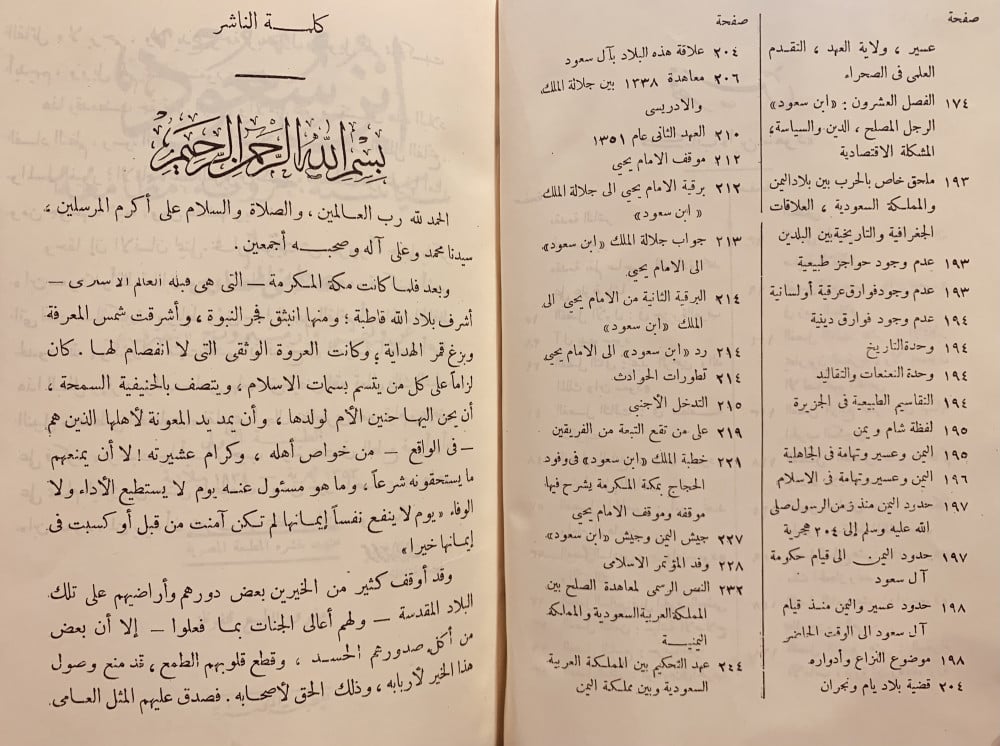 صفحة
عسير ، ولاية العهد ، التقدم
العلمى فى الصحراء
١٧٤ الفصل العشرون : «ابن سعود»
الرجل المصلح ، الدين والسياسة ،
المشكلة الاقتصادية
١٩٣ ملحق خاص بالحرب بين بلاد اليمن
والمملكة السعودية ، العلاقات
الجغرافية والتاريخية بين البلدين
١٩٣ عدم وجود حواجز طبيعية
١٩٣ عدم وجود فوارق عرقية أو لسانية
١٩٤ عدم وجود فوارق دينية
١٩٤ وحدة التاريخ
١٩٤ وحدة النعنعات والتقاليد
١٩٤ التقاسيم الطبيعية فى الجزيرة
١٩٥ لفظة شام ويمن
١٩٥ اليمن وعسير وتهامة فى الجاهلية
١٩٦ اليمن وعسير وتهامة فى الاسلام
١٩٧ حدود اليمن منذ زمن الرسول صلى
الله عليه وسلم إلى ٢٠٤ هجرية
١٩٧ حدود اليمن الى قيام حكومة
آل سعود
١٩٨ حدود عسير واليمن منذ قيام
آل سعود الى الوقت الحاضر
١٩٨ موضوع النزاع وأدواره
٢٠٤ قضية بلاد يام ونجران
صفحة
٢٠٤ علاقة هذه البلاد بآل سعود
٢٠٦ معاهدة ١٣٣٨ بين جلالة الملك
والادريسى
٢١٠ العهد الثانى عام ١٣٥١
٢١٢ موقف الامام يحيى
٢١٢ برقية الامام يحيى الى جلالة الملك
«ابن سعود»
٢١٣ جواب جلالة الملك «ابن سعود»
الى الامام يحيى
٢١٤ البرقية الثانية من الامام يحيى الى
الملك «ابن سعود»
٢١٤ رد «ابن سعود» الى الامام يحيى
٢١٤ تطورات الحوادث
٢١٥ التدخل الأجنبى
٢١٩ على من تقع التبعة من الفريقين
٢٢١ خطبة الملك «ابن سعود» فى وفود
الحجاج بمكة المكرمة يشرح فيها
موقفه وموقف الامام يحيى
٢٢٧ جيش اليمن وجيش «ابن سعود»
٢٢٨ وفد المؤتمر الاسلامى
٢٣٢ النص الرسمى لمعاهدة الصلح بين
المملكة العربية السعودية والمملكة
اليمنية
٢٤٤ عهد التحكيم بين المملكة العربية
السعودية وبين مملكة اليمن
كلمة الناشر
بسم الله الرحمن الرحيم
الحمد لله رب العالمين ، والصلاة والسلام على أكرم المرسلين ،
سيدنا محمد وعلى آله وصحبه أجمعين .
وبعد فلما كانت مكة المكرمة — التى هى قبلة العالم الأسرى —
أشرف بلاد الله قاطبة ؛ ومنها انبثق فجر النبوة ، وأشرقت شمس المعرفة
وبزغ قمر الهداية ؛ وكانت العروة الوثقى التى لا انفصام لها . كان
لزاماً على كل من يتسم بسمات الاسلام ، ويتصف بالحنيفية السمحة ،
أن يحن اليها حنين الأم لولدها ، وأن يمد يد المعونة لأهلها الذين هم
— فى الواقع — من خواص أهله ، وكرام عشيرته ! لا أن يمنعهم
ما يستحقونه شرعاً ، وما هو مسئول عنه يوم لا يستطيع الأداء ولا
الوفاء «يوم لا ينفع نفساً إيمانها لم تكن آمنت من قبل أو كسبت فى
إيمانها خيرا»
وقد أوقف كثير من الخيرين بعض دورهم وأراضيهم على تلك
البلاد المقدسة — ولهم أعالى الجنات بما فعلوا — إلا أن بعض
من أكل صدورهم الحسد ، وقطع قلوبهم الطمع ، قد منع وصول
هذا الخير لأربابه ، وذلك الحق لأصحابه . فصدق عليهم المثل العامى